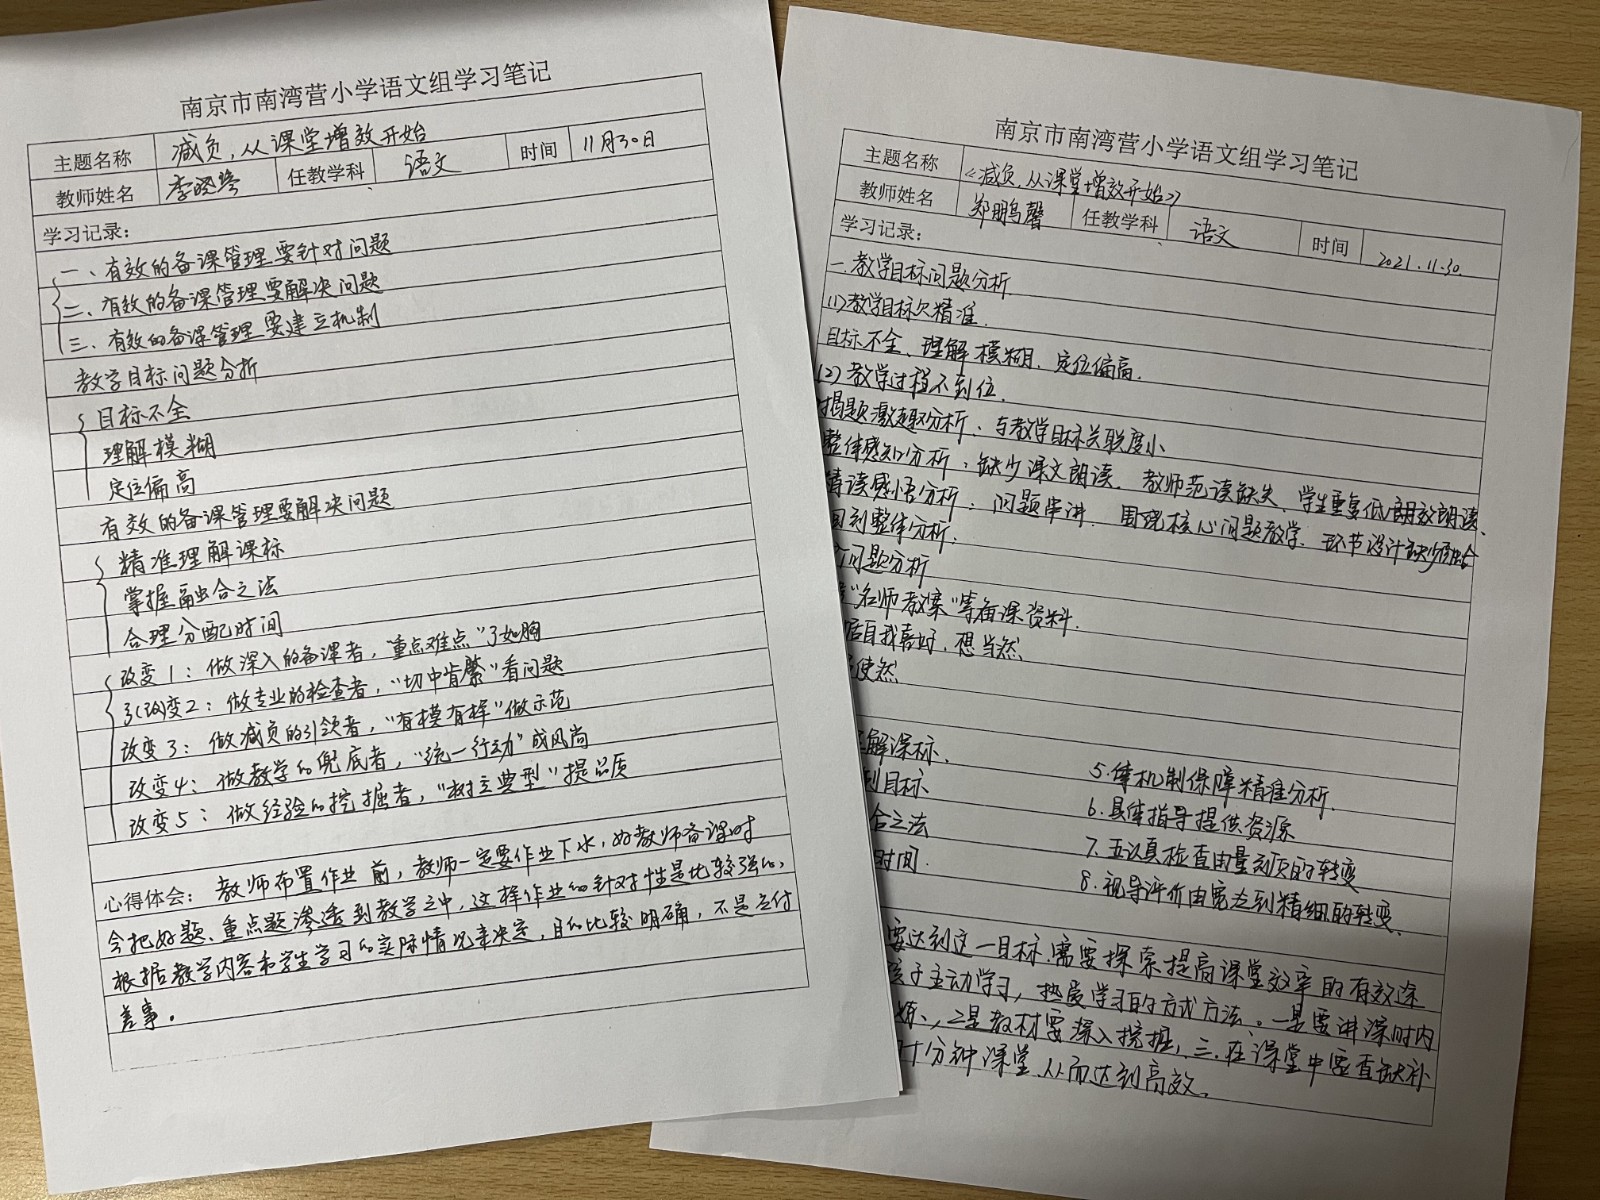 南京市南湾营小学语文组学习笔记
主题名称 减负,从课堂增效开始
教师姓名 李晓 任教学科 语文 时间 11月30日
学习记录:
一、有效的备课管理要针对问题
二、有效的备课管理要解决问题
三、有效的备课管理要建立机制
教学目标问题分析
目标不全
理解模糊
定位偏高
有效的备课管理要解决问题
精准理解课标
掌握融合之法
合理分配时间
改变1:做深入的备课者,“重点难点”了如胸
改变2:做专业的检查者,“切中肯綮”看问题
改变3:做减负的引领者,“有模有样”做示范
改变4:做教学的兜底者,“统一行动”成风尚
改变5:做经验的挖掘者,“树立典型”提品质
心得体会: 教师布置作业前,教师一定要作业下水,好教师备课时
会把好题、重点题渗透到教学之中,这样作业的针对性是比较强的,
根据教学内容和学生学习的实际情况来决定,目的比较明确,不是应付
差事。
南京市南湾营小学语文组学习笔记
主题名称 《减负,从课堂增效开始》
教师姓名 郑鹏馨 任教学科 语文 时间 2021.11.30
学习记录:
一.教学目标问题分析
(1)教学目标欠精准.
目标不全、理解模糊、定位偏高.
(2)教学过程不到位.
揭题激趣分析:与教学目标关联度小
整体感知分析:缺少课文朗读.教师范读缺失.学生重复低效朗读.
精读感悟分析:问题串讲.围绕核心问题教学.环节设计缺少融合
回到整体分析:
问题分析
“名师教案”等备课资料.
自我喜好,想当然、
使然
解课标、
到目标
合之法
时间.
5.体机制保障精准分析.
6.具体指导提供资源
7.五认真检查由量到质的转变
8.视导评价由宽泛到精细的转变.
要达到这一目标.需要探索提高课堂效率的有效途
孩子主动学习,热爱学习的方式方法。一是要讲课时内
炼、二是教材要深入挖掘,三.在课堂中要查缺补
十分钟课堂.从而达到高效.